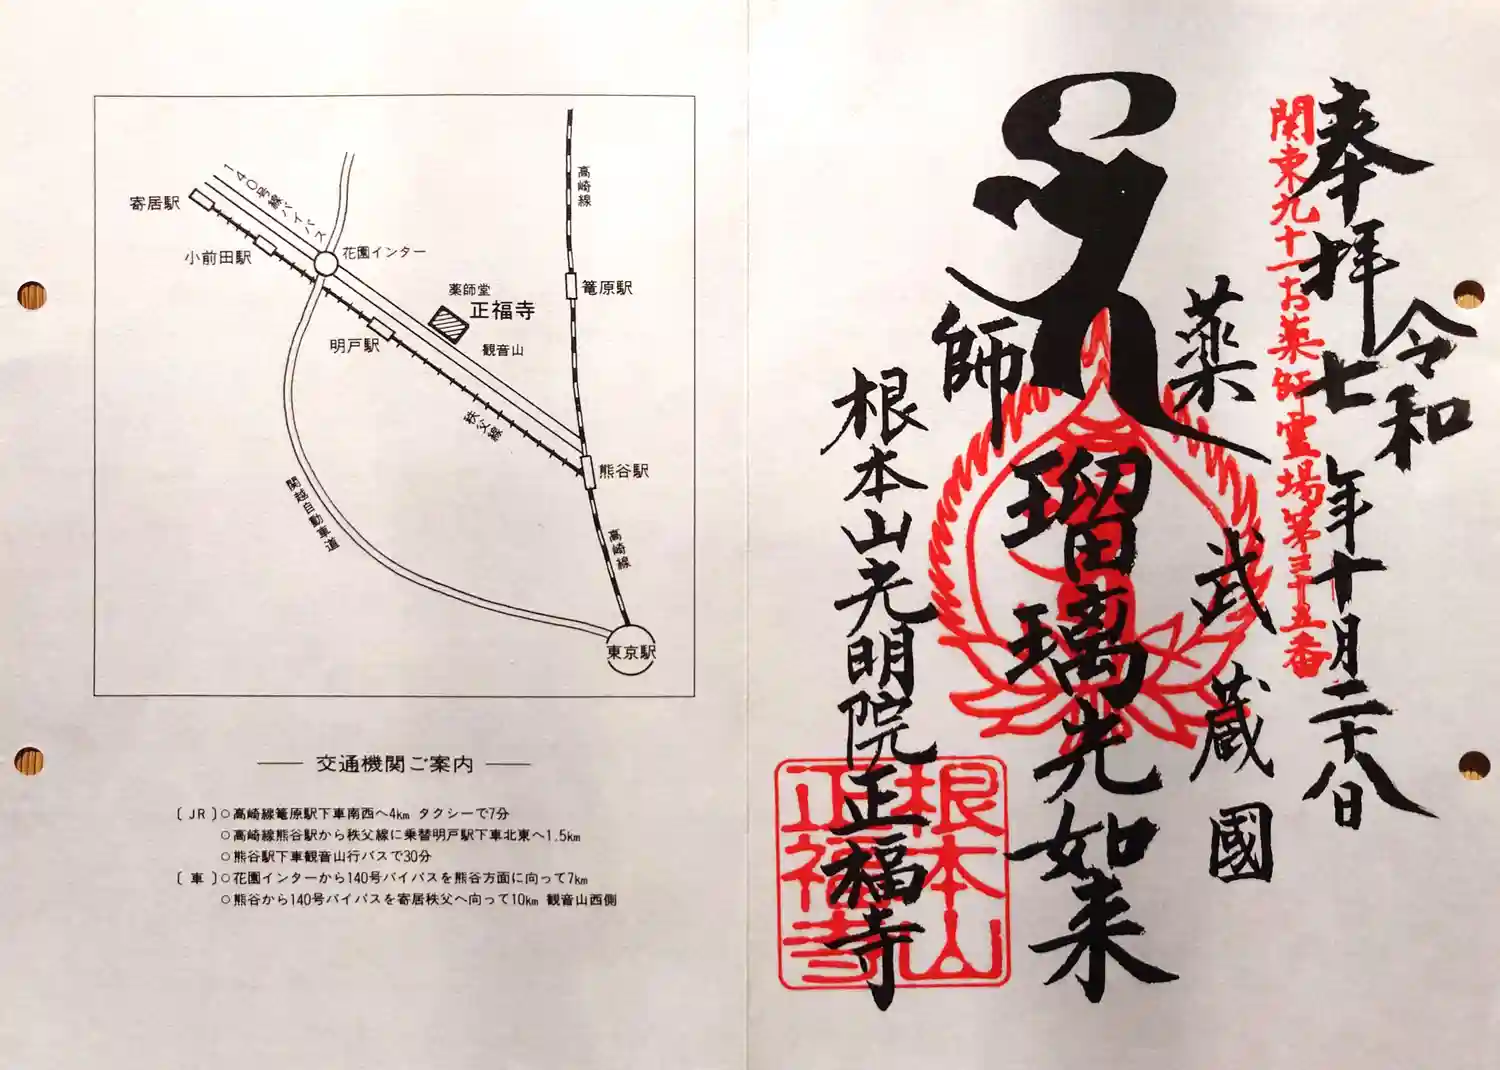 高崎線
140号線バイパス
寄居駅
小前田駅
花園インター
薬師堂
正福寺
篭原駅
明戸駅
観音山
秩父線
熊谷駅
関越自動車道
高崎線
東京駅
交通機関ご案内
〔JR〕○高崎線篭原駅下車南西へ4km タクシーで7分
○高崎線熊谷駅から秩父線に乗替明戸駅下車北東へ1.5km
○熊谷駅下車観音山行バスで30分
〔車〕○花園インターから140号バイパスを熊谷方面に向って7km
○熊谷から140号バイパスを寄居秩父へ向って10km 観音山西側
奉拝
令和七年十月二十八日
関東九十一お薬師霊場第三十五番
武蔵國
薬師
瑠璃光如来
根本山光明院正福寺
根本山
正福寺